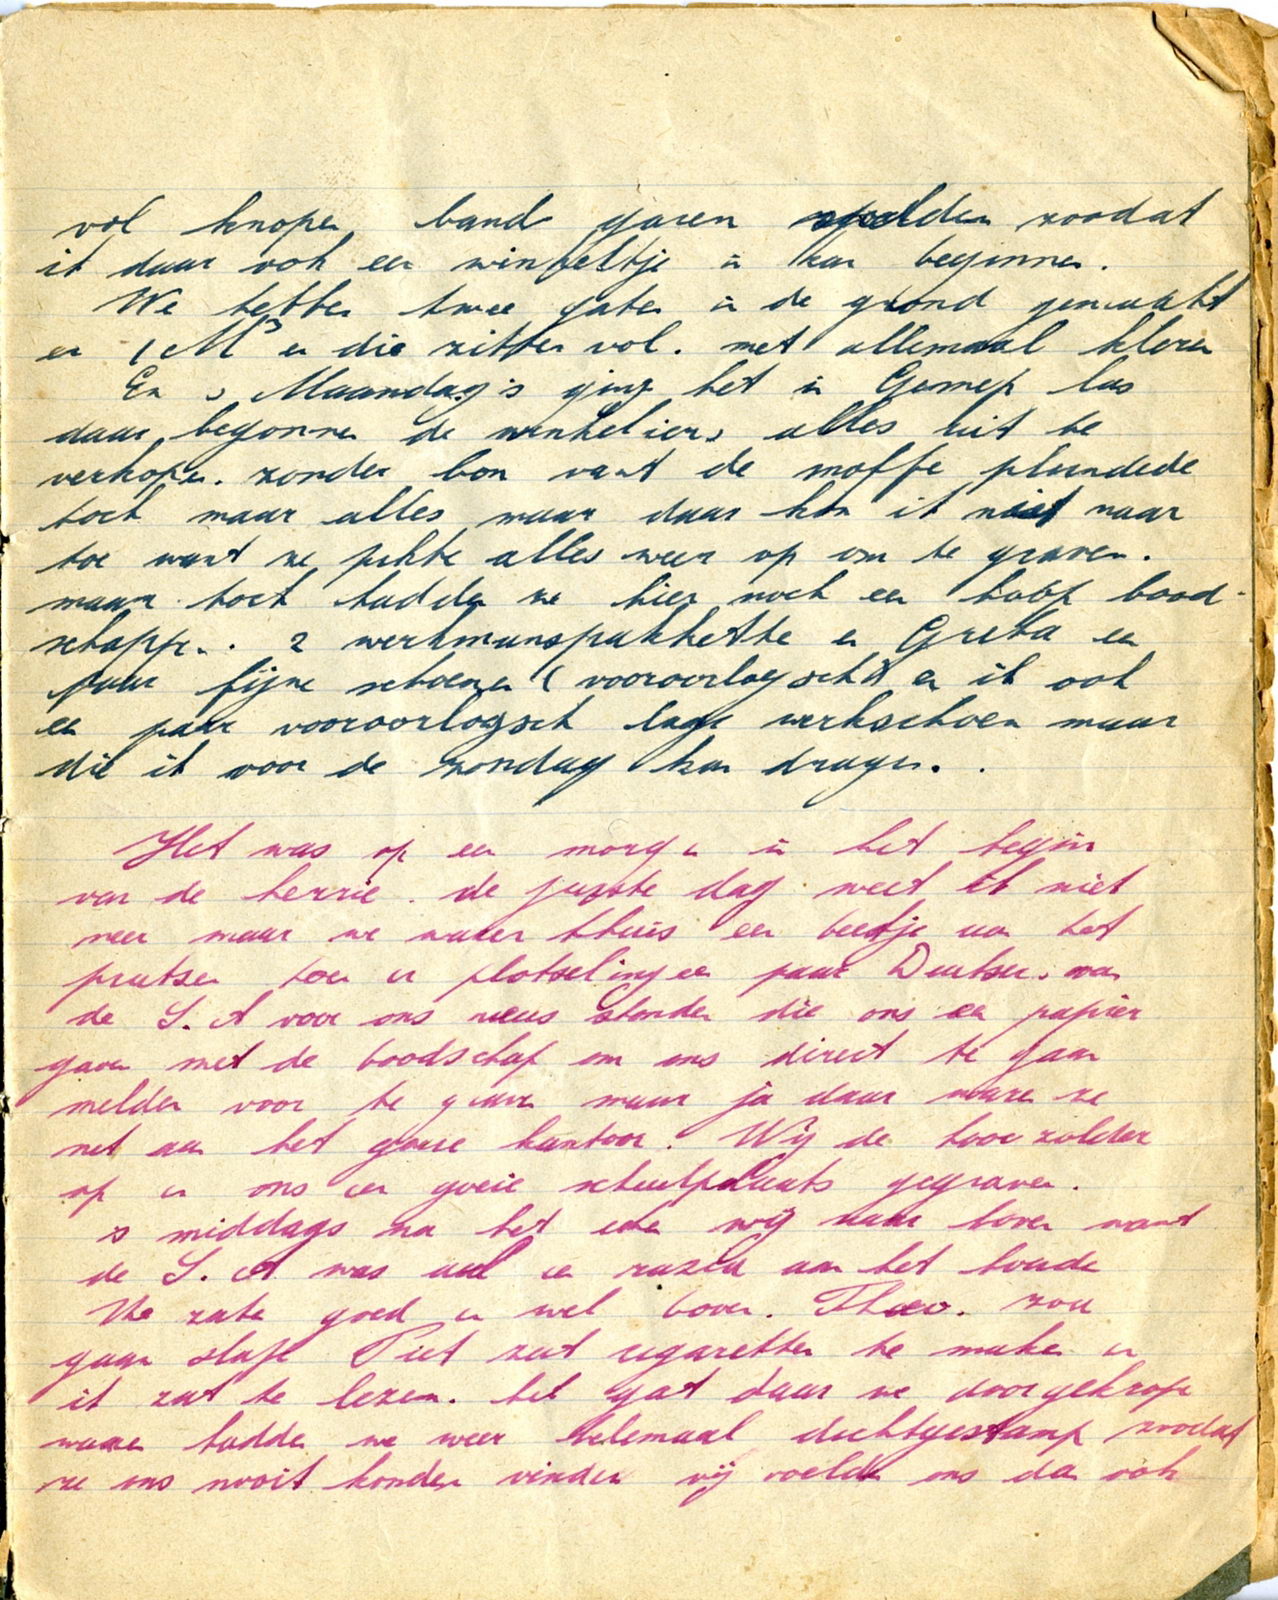 vol knopen band garen spelden zoodat
ik daar ook een winkeltje in kan beginnen.
We hebben twee gaten in de grond gemaakt
en 1 M³ en die zitten vol. met allemaal kleren
En s Maandag's ging het in Gennep los
daar begonnen de winkeliers alles uit te
verkopen. zonder bon want de moffe plundede
toch maar alles maar daar kon ik niet naar
toe want ze pikte alles weer op om te graven.
maar toch hadden ze hier noch een hoop bood-
schappen. 2 werkmanspakkette en Greta een
paar fijne schoenen (vooroorlogsch) en ik ook
een paar vooroorlogsch lage werkschoen maar
die ik voor de zondag kan dragen.
Het was op een morgen in het begin
van de herrie. de juiste dag weet ik niet
meer maar we waren thuis een beetje aan het
prutsen toen er plotseling een paar Duitsen. van
de S.A voor ons neus stonden die ons een papier
gaven met de boodschap om ons direct te gaan
melden voor te graven maar ja daar waren ze
net aan het goeie kantoor. Wij de hooizolder
op en ons een goeie schuilplaats gegraven.
s middags na het eten wij naar boven want
de S.A was aan het
We zaten goed en wel boven. Theo. zou
gaan slape Piet zat cigaretten te maken en
ik zat te lezen. het gat daar we doorgekrope
waren hadden we weer helemaal dichtgestamp zoodat
ze ons nooit konden vinden wij voelde ons dan ook